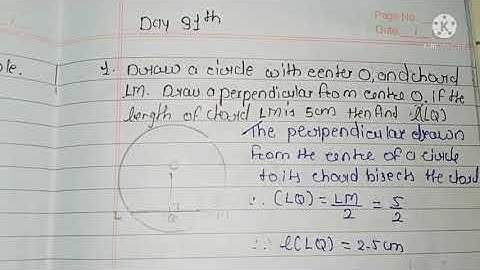 Day 81th
Page No.
Date
KINEMASTER
ole.
1. Draw a circle with center O, and chard
LM. Draw a perpendicular from centre O. if the
length of chard LM is 5cm then find l(LQ)
The perpendicular drawn
from the centre of a circle
to its chard bisects the chard
∴ (LQ) = LM/2 = 5/2
∴ l(LQ) = 2.5cm
O
L Q M